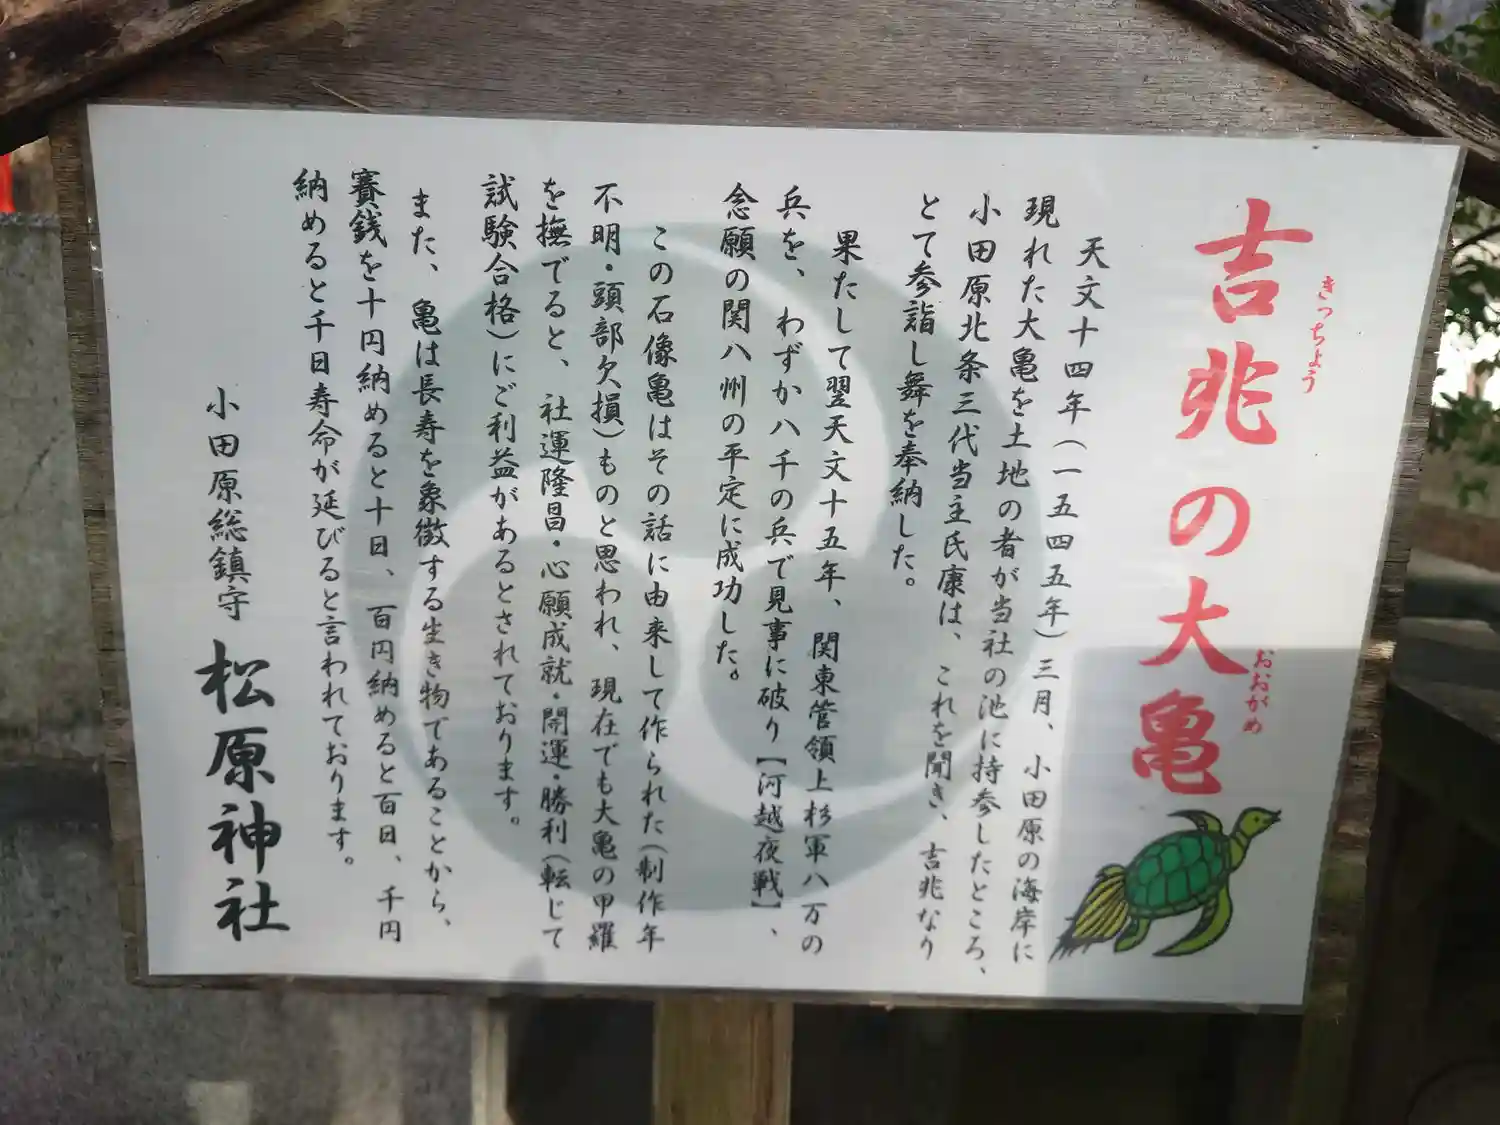 吉兆の大亀
きっちょう
おおがめ
天文十四年（一五四五年）三月、小田原の海岸に
現れた大亀を土地の者が当社の池に持参したところ、
小田原北条三代当主氏康は、これを聞き、吉兆なり
とて参詣し舞を奉納した。
果たして翌天文十五年、関東管領上杉軍八万の
兵を、わずか八千の兵で見事に破り【河越夜戦】、
念願の関八州の平定に成功した。
この石像亀はその話に由来して作られた（制作年
不明・頭部欠損）ものと思われ、現在でも大亀の甲羅
を撫でると、社運隆昌・心願成就・開運・勝利（転じて
試験合格）にご利益があるとされております。
また、亀は長寿を象徴する生き物であることから、
賽銭を十円納めると十日、百円納めると百日、千円
納めると千日寿命が延びると言われております。
小田原総鎮守 松原神社